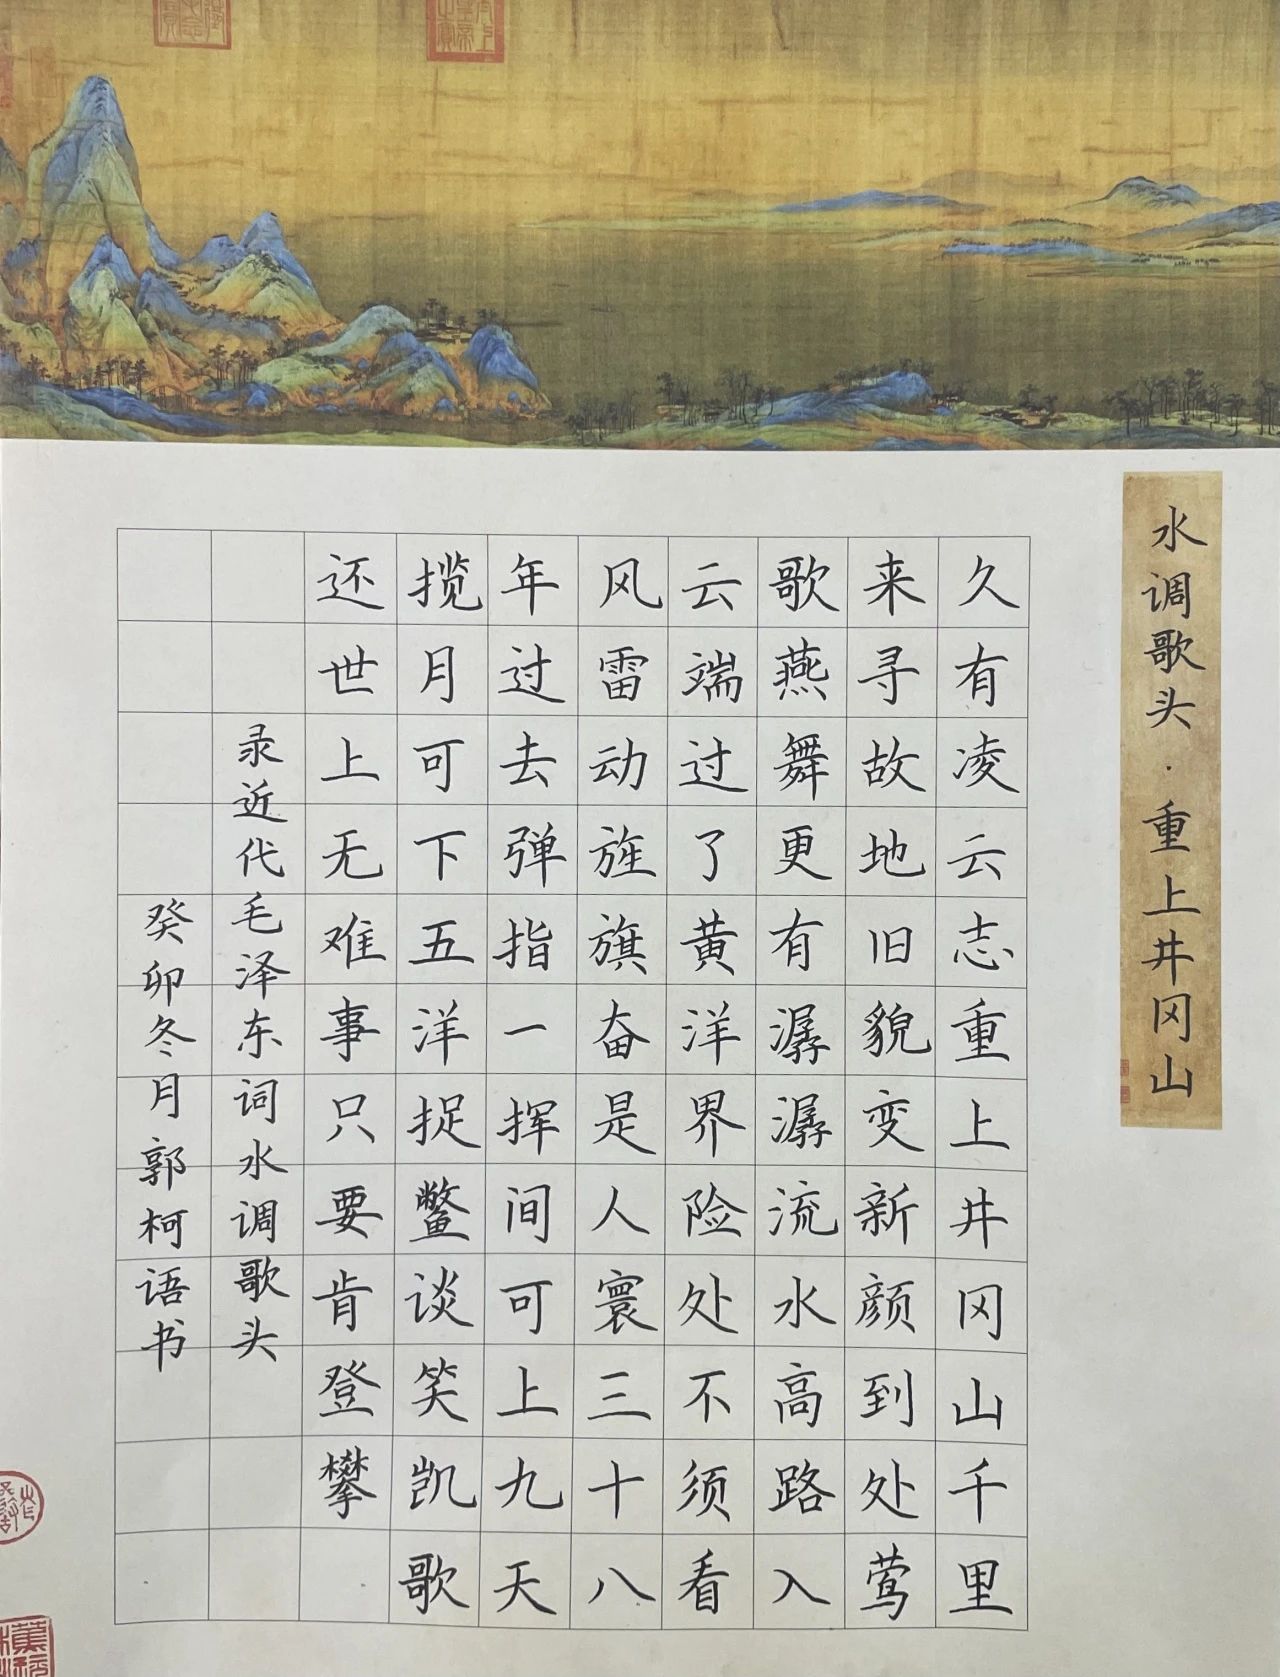 水调歌头·重上井冈山
久有凌云志重上井冈山千里
来寻故地旧貌变新颜到处莺
歌燕舞更有潺潺流水高路入
云端过了黄洋界险处不须看
风雷动旌旗奋是人寰三十八
年过去弹指一挥间可上九天
揽月可下五洋捉鳖谈笑凯歌
还世上无难事只要肯登攀
录近代毛泽东词水调歌头
癸卯冬月郭柯语书